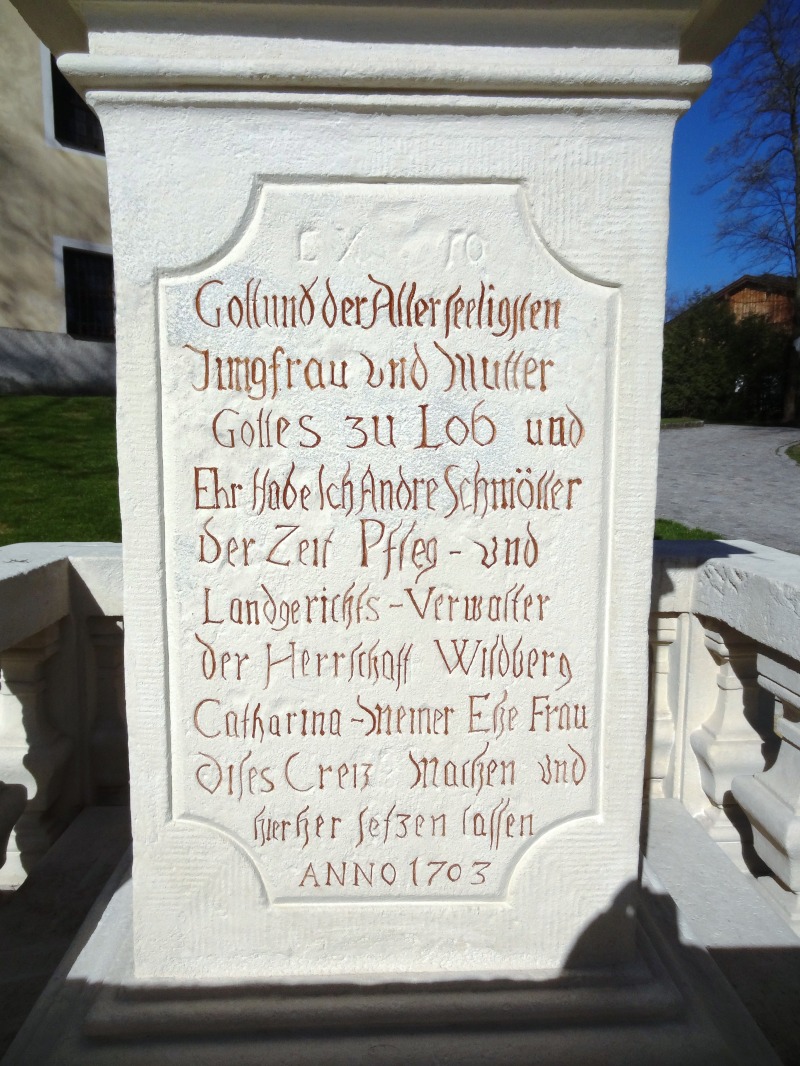 Gott und der Aller seeligsten
Jungfrau und Mutter
Gottes zu Lob und
Ehr Habe Ich Andre Schmöller
der Zeit Pfleg - und
Landgerichts - Verwalter
der Herrschaft Wildberg
Catharina - Meiner Ehe Frau
dises Creiz Machen und
hierher setzen lassen
ANNO 1703